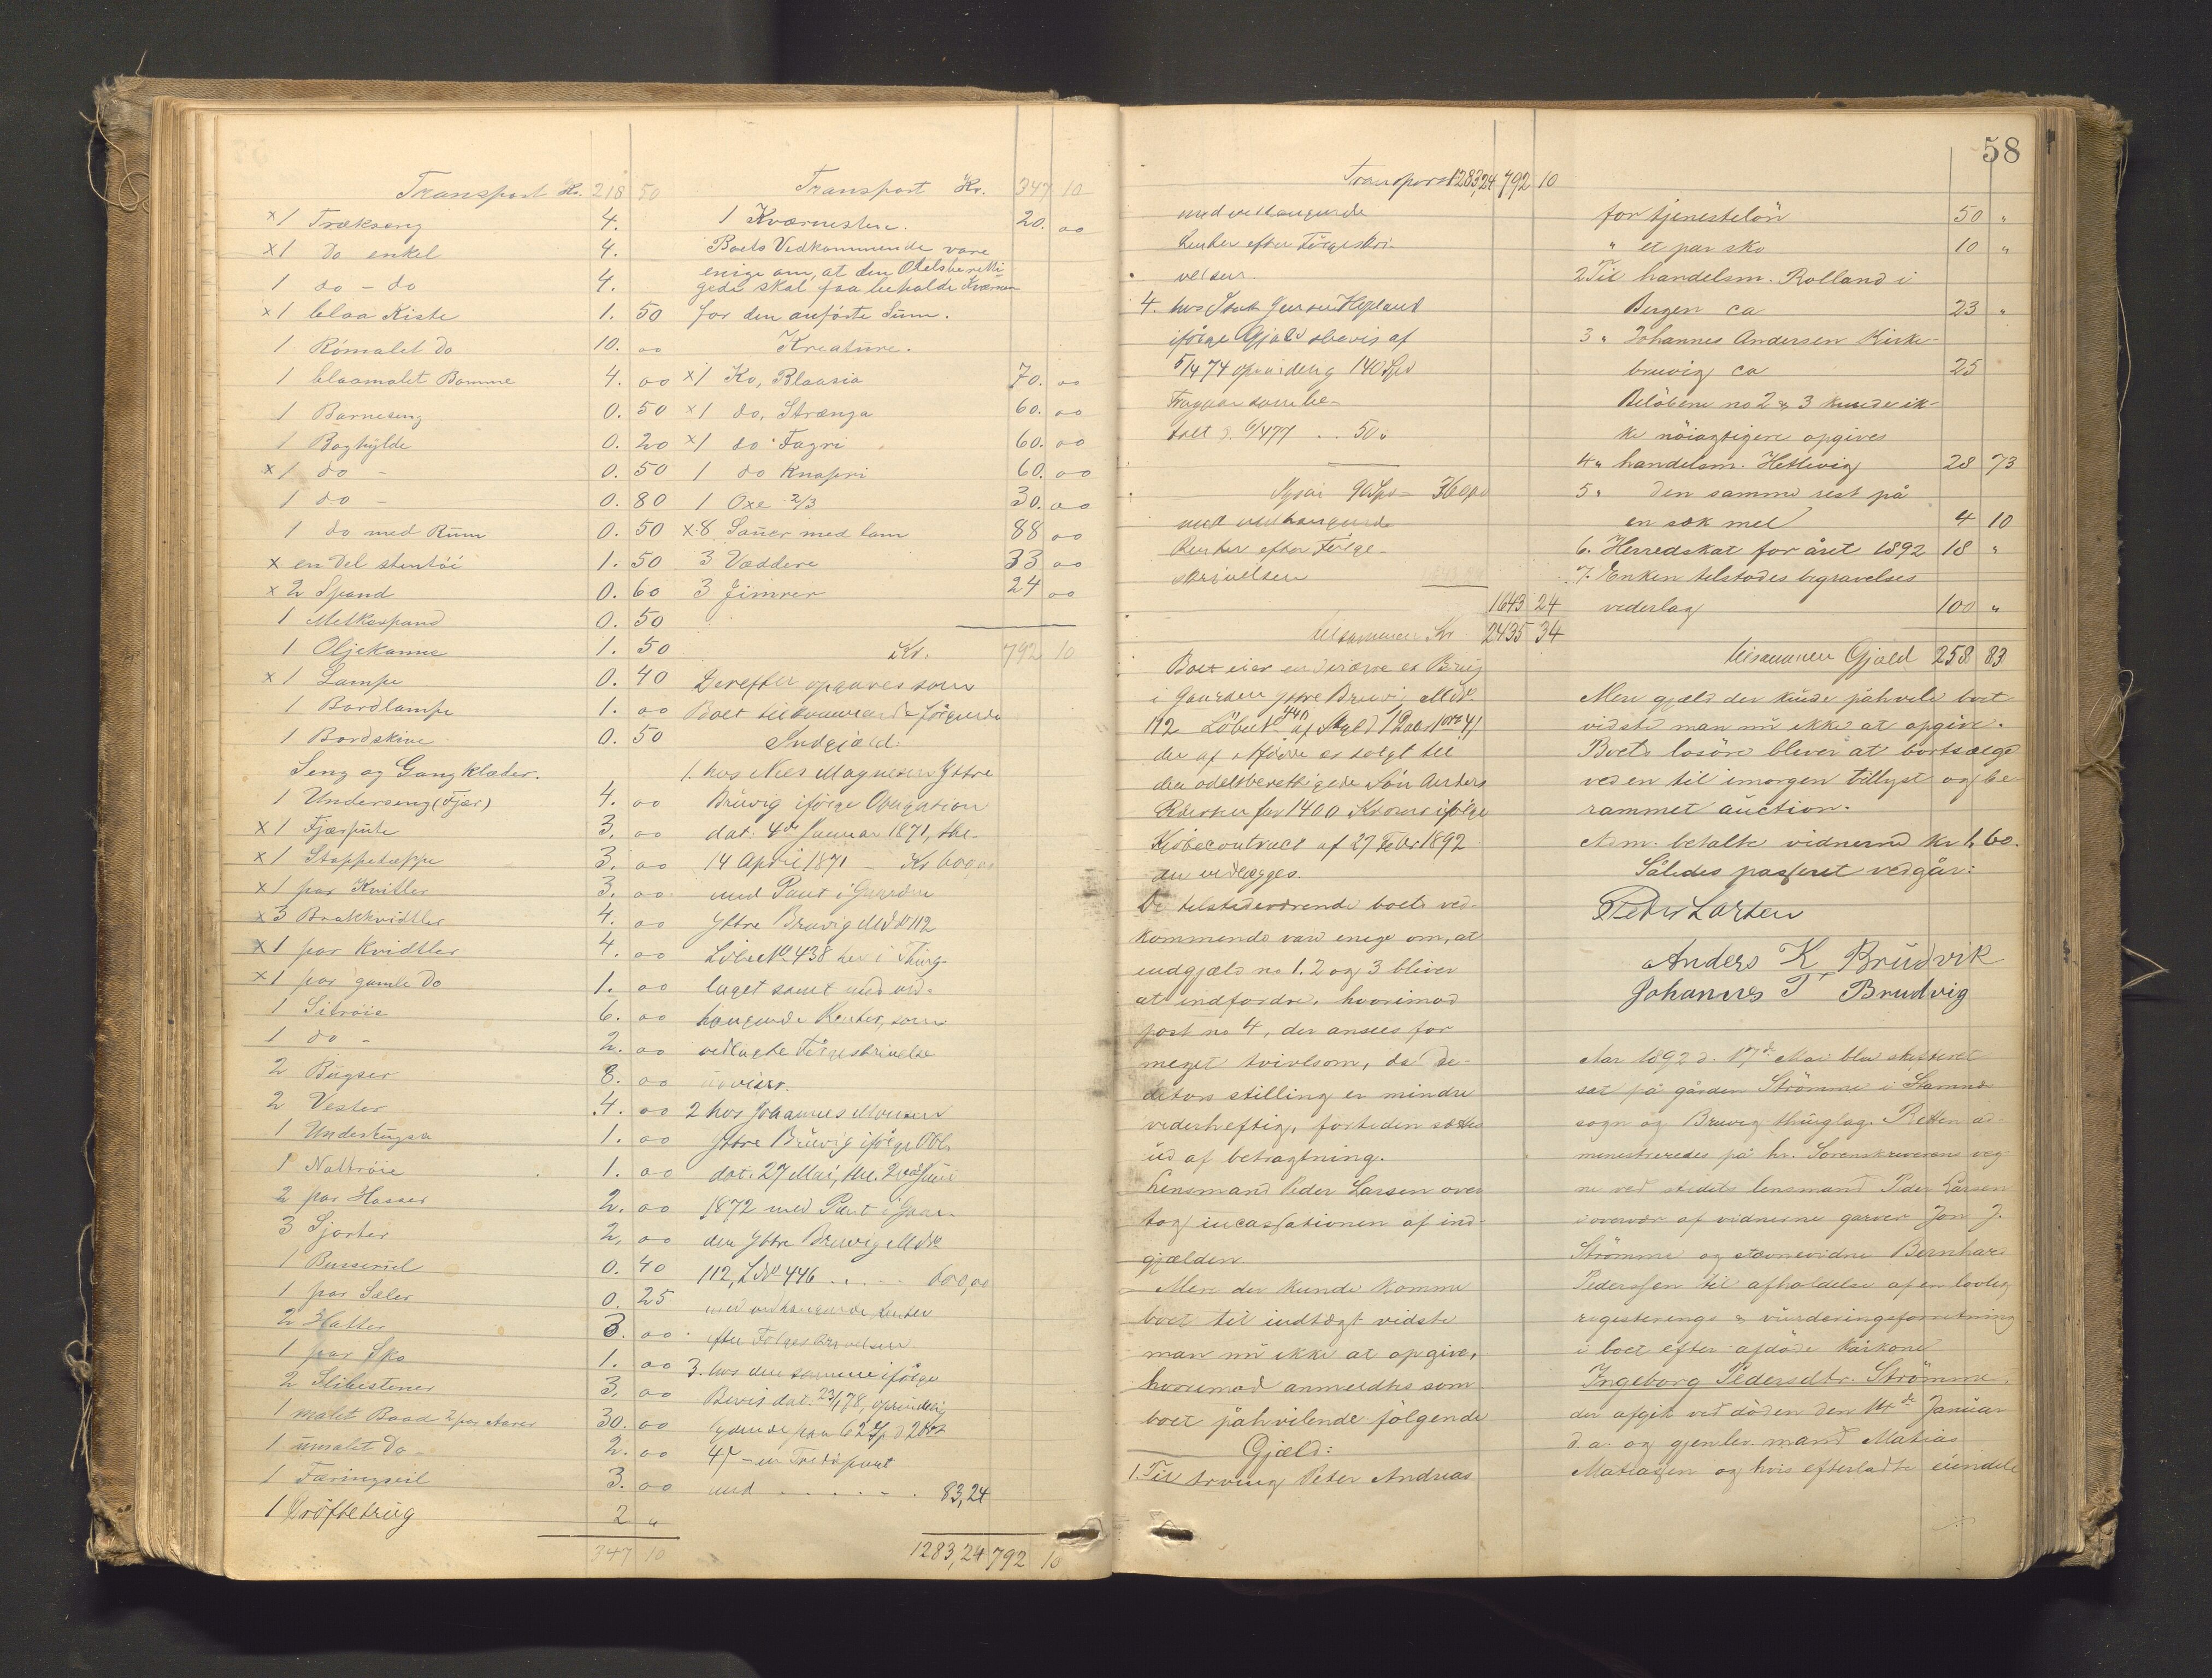 Transport Kr. 218 50
×1 Træksæng 4.
×1 Do enkel 4.
1 do - do 4.
×1 blaa Kiste 1. 50
1 Rómalet do 10. 00
1 blaamalet Bomme 4. 00
1 Barneseng 0. 50
1 Boghylde 0. 20
×1 do - 0. 50
1 do - 0. 80
1 do med Rum 0. 50
× en Del stentöi 1. 50
×2 Spand 0. 60
1 Melkaspand 0. 50
1 Oljekanne 1. 50
×1 Lampe 0. 40
1 Bordlampe 1. 00
1 Bordskive 0. 50
Seng og Gangklæder.
1 Underseng (Fjær) 4. 00
×1 Fjærpute 3. 00
×1 Stoppetæppe 3. 00
×1 par Kvitler 3. 00
×3 Brakkvidtler 4. 00
×1 par Kvidtler 4. 00
×1 par gamle Do 1. 00
1 Sitröie 6. 00
1 do - 2. 00
2 Buxser 8. 00
2 Vester 4. 00
1 Underbuxe 1. 00
1 Nattröie 1. 00
2 par Hosser 2. 00
3 Sjorter 2. 00
1 0. 40
1 par Sæler 0. 25
2 Hatter 3. 00
1 par Sko 1. 00
2 Slibestener 3. 00
1 malet Baad 2 par Aarer 30. 00
1 umalet Do - 2. 00
1 Færingseil 3. 00
1 Dröftetrug 2 "
347 10
Transport Kr. 347 10
1 Kværnesten. 20. 00
Boets Vedkommende vare
enige om, at den Odelsberetti-
gede skal faa beholde Kværnen
for den anførte Sum.
Kreature.
×1 Ko, Blaasia 70. 00
×1 do, Strænga 60. 00
×1 do Fagri 60. 00
1 do Knapri 60. 00
1 Oxe 2/3 30. 00
×8 Sauer med lam 88 00
3 Væddere 33 00
3 Jimrer 24 00
Kr. 792 10
Derefter opgaves som
Boet tilkommende følgende
Indgjæld:
1. hos Nils Magnesen Ytre
Bruvig ifølge Obligation
dat. 4de Januar 1871, thl.
14 April 1871 - Kr 600,00
med Pant i Gaarden
Ytre Bruvig M No 112
Löbe No 438 her i Thing-
laget samt med ved-
hængende Renter, som
vedlagte Følgeskrivelse
udviser.
2 hos Johannes Monsen
Ytre Bruvig ifølge Obl.
dat. 27 Mai, thl. 2 Juni
1872 med Pant i Gaar-
den Ytre Bruvig M No
112, L No 446 . . . . 600,00
med vedhængende Renter
efter Følgeskrivelsen.
3. hos den samme ifølge
Bevis dat. 23/1 78, oprindelig
lydende paa 62 Sp 2 Ort
4 s - en Trediepart
med . . . . . . 83,24
1283,24 792 10
58
Transport 1283,24 792 10
med vedhængende
Renter efter Følgeskri-
velsen.
4. hos Jensen
ifølge Gjeldsbevis af
5/1 74 oprindelig 140 Spd
Fragaar som be-
talt d. 6/4 77 . . 50 "
Igjen 90 Spd = 360,00
med vedhængende
Renter efter Følge-
skrivelsen
1643 24
tilsammen Kr 2435 34
Boet eier en Brug
i Gaarden Ytre Bruvig M No
112 Löbe No 447 af Skyld 1 Daler 1 ort 4 s
der af afdøde er solgt til
den odelsberettigede Søn Anders
Pedersen for 1400 Kroner ifølge
Kjöbecontract af 27 Febr 1892
der vedlægges.
De tilstedeværende boets ved-
kommende vare enige om, at
indgjæld no 1. 2 og 3 bliver
at indfordre, hvorimod
post no 4, der ansees for
meget tvivlsom, da de-
bitors stilling er mindre
vederheftig, fortiden sættes
ud af betragtning.
Lensmand Peder Larsen over
tog incassationen af ind-
gjælden.
Mere der kunde komme
boet til indtægt vidste
man nu ikke at opgive,
hvorimod anmeldtes som
boet påhvilende følgende
Gjæld:
1. Til Peter Andreas
for tjenestelön 50 "
" et par sko 10 "
2 Til handelsm. Rolland i
Bergen ca 23 "
3 " Johannes Andersen Kirke-
bruvig ca 25
Belöbene no 2 & 3 kunde ik-
ke nöiagtigere opgives
4 " handelsm. Hettevig 28 73
5 " den samme rest på
en sæk mel 4 10
6. Herredskat for året 1892 18 "
7. Enken tilstodes begravelses
vederlag 100 "
tilsammen Gjæld 258 83
Mere gjæld der kunde påhvile boet
vidste man nu ikke at opgive.
Boets lösöre bliver at bortsælge
ved en til imorgen tillyst og be-
rammet auction.
Adm. betalte vidnerne kr 1,60.
Således passeret vedgår:
Peder Larsen
Anders K Brudvik
Johannes T Brudvig
Aar 1892 d. 17de Mai blev skifteret
sat på gården Strömme i Stamnes
sogn og Bruvig thinglag. Retten ad-
ministreredes på hr. Sorenskriverens veg-
ne ved stedets lensmand Peder Larsen
i overvær af vidnerne garver Jon J.
Strömme og stævnevidne Bernhard
Pederssen til afholdelse af en lovlig
registrerings & vurderingsforretning
i boet efter afdöde kårkone
Ingeborg Pedersdtr. Strömme,
der afgik ved döden den 14de Januar
d.a. og gjenlev. mand Matias
Matiassen og hvis efterladte eiendele